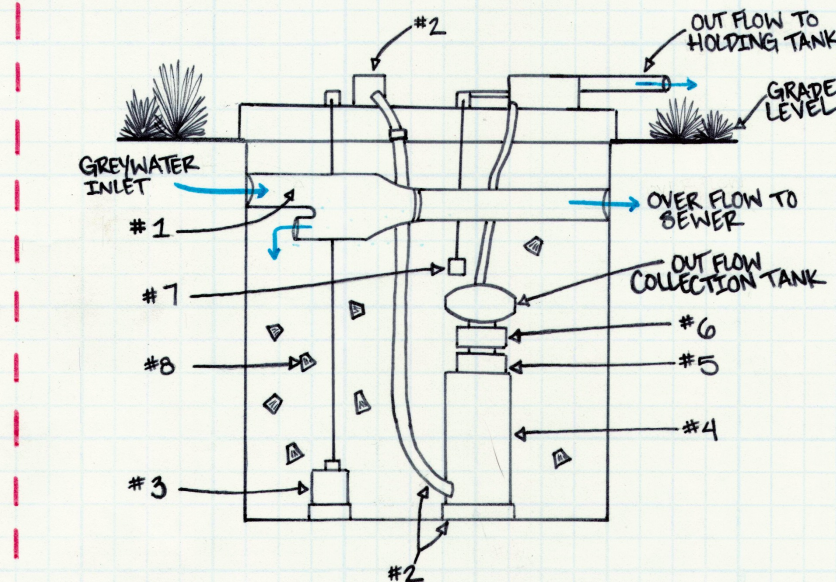 #2
OUT FLOW TO
HOLDING TANK
GRADE
LEVEL
GREYWATER
INLET
#1
OVER FLOW TO
SEWER
OUT FLOW
COLLECTION TANK
#7
#6
#8
#5
#4
#3
#2